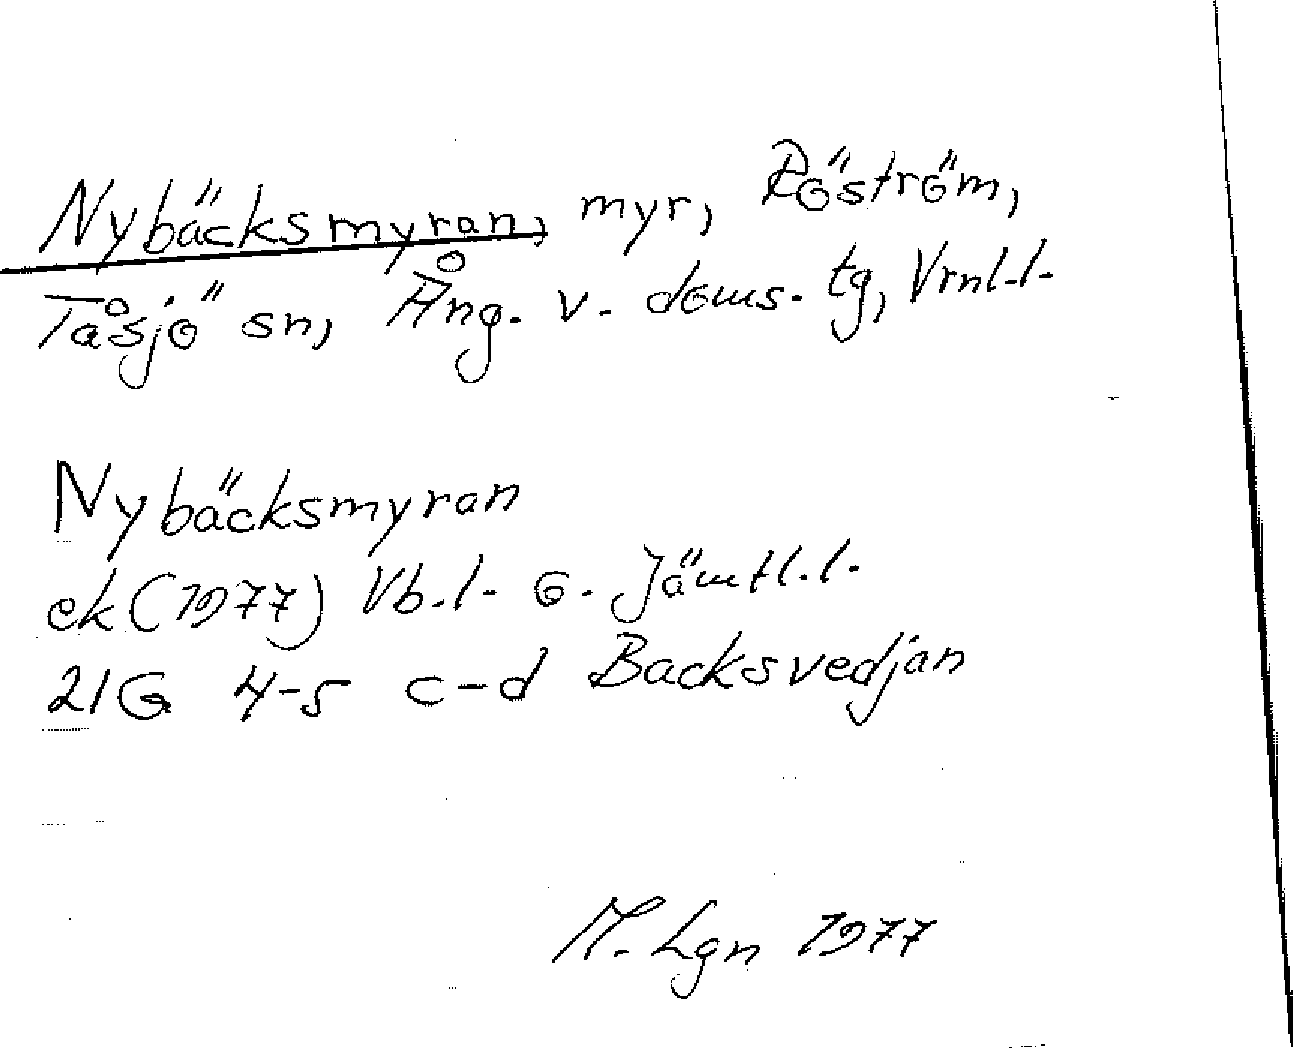 Nybäcksmyran, myr, Röström,
Tåsjö sn, Ång. v. doms. tg, Vrnl.l.
Nybäcksmyran
ek (1977) Vb.l. o. Jämtl.l.
21G 4-5 c-d Backsvedjan
M. Lgn 1977